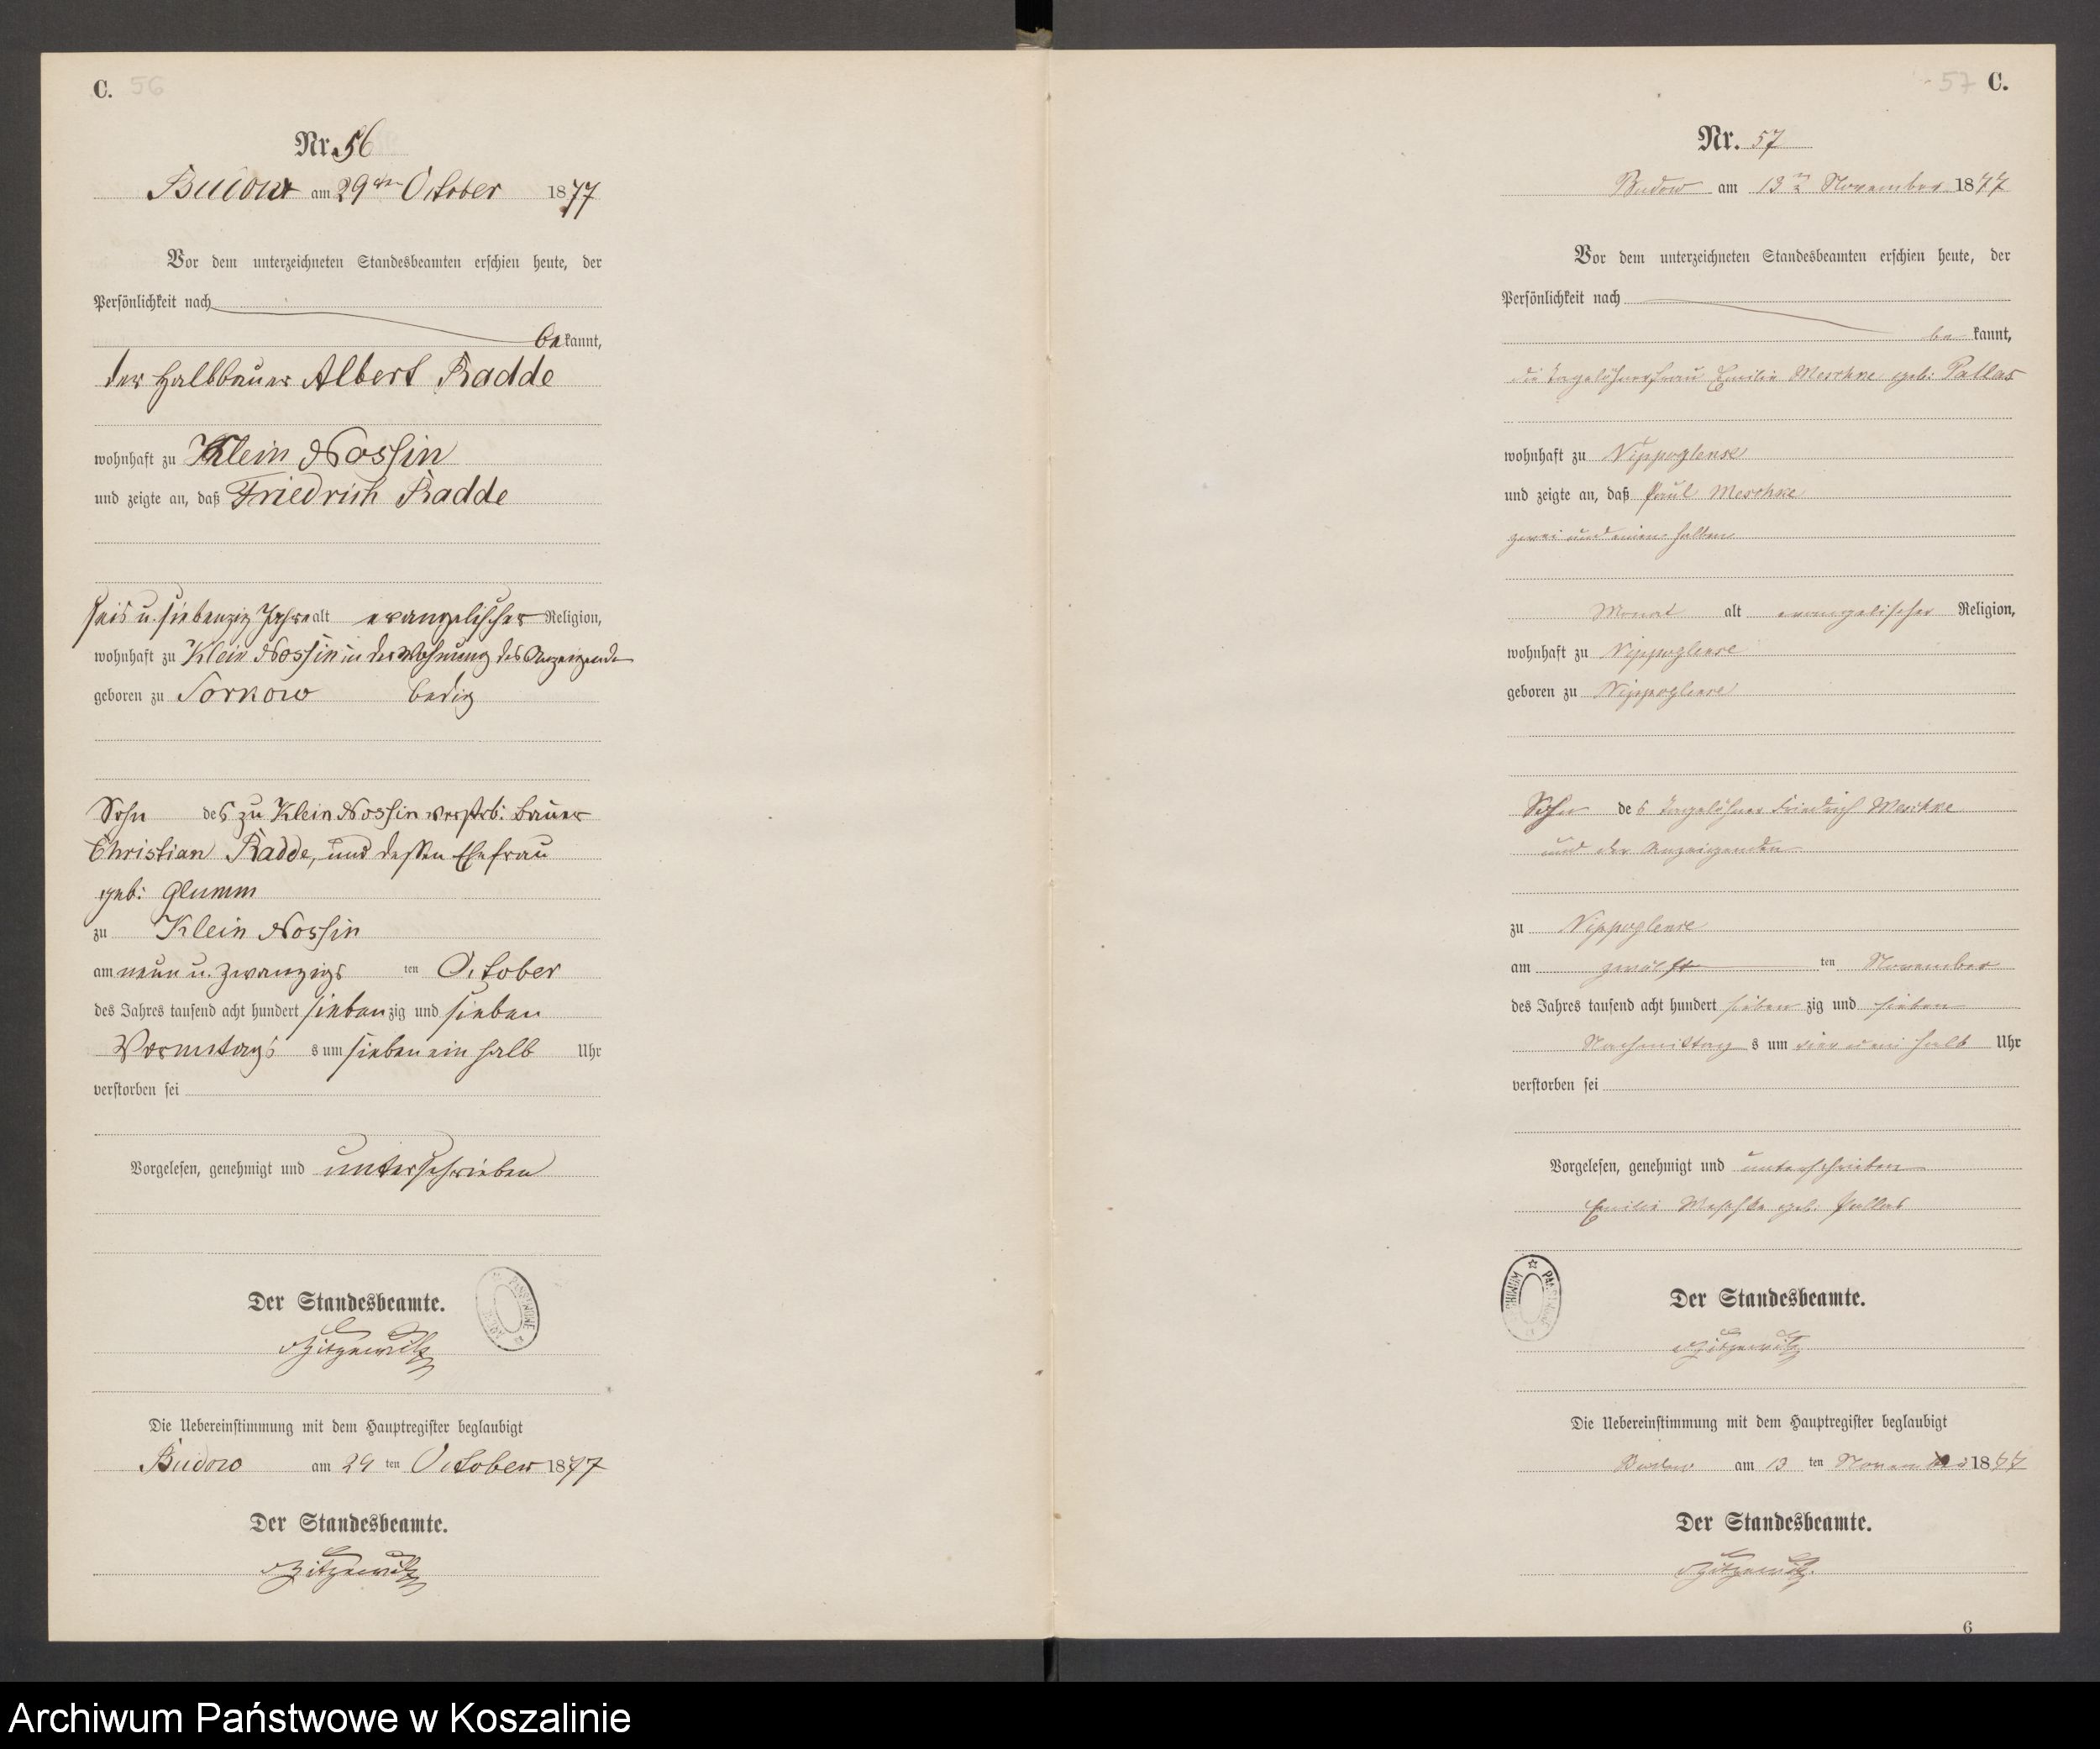 C. 56
Nr. 56
Budow am 29ten October 1877
Vor dem unterzeichneten Standesbeamten erschien heute, der
Persönlichkeit nach
bekannt,
der Halbbauer Albert Radde
wohnhaft zu Klein Nossin
und zeigte an, daß Friedrich Radde
u. siebenzig Jahre alt evangelischer Religion,
wohnhaft zu Klein Nossin in der Wohnung des Anzeigenden
geboren zu Sorkow ledig
Sohn des zu Klein Nossin verstrb: Bauer
Christian Radde, und dessen Ehefrau
geb: Glumm
zu Klein Nossin
am neun u. zwanzigs ten October
des Jahres tausend acht hundert siebenzig und sieben
Vormittags s um sieben ein halb Uhr
verstorben sei
Vorgelesen, genehmigt und unterschrieben
Der Standesbeamte.
vZitzewitz
Die Uebereinstimmung mit dem Hauptregister beglaubigt
Budow am 29 ten October 1877
Der Standesbeamte.
vZitzewitz
57 C.
Nr. 57
Budow am 13ten November 1877
Vor dem unterzeichneten Standesbeamten erschien heute, der
Persönlichkeit nach
bekannt,
die Tagelöhnerfrau Emilie Meschke geb: Pallas
wohnhaft zu Nippoglense
und zeigte an, daß Paul Meschke
zwei und einen halben
Monat alt evangelischer Religion,
wohnhaft zu Nippoglense
geboren zu Nippoglense
Sohn des Tagelöhner Friedrich Meschke
und der Anzeigenden
zu Nippoglense
am zwölf ten November
des Jahres tausend acht hundert sieben zig und sieben
Nachmittag s um vier u ein halb Uhr
verstorben sei
Vorgelesen, genehmigt und unterschrieben
Emilie Meschke geb. Pallas
Der Standesbeamte.
vZitzewitz
Die Uebereinstimmung mit dem Hauptregister beglaubigt
Budow am 13 ten November 1877
Der Standesbeamte.
vZitzewitz
6
Archiwum Państwowe w Koszalinie